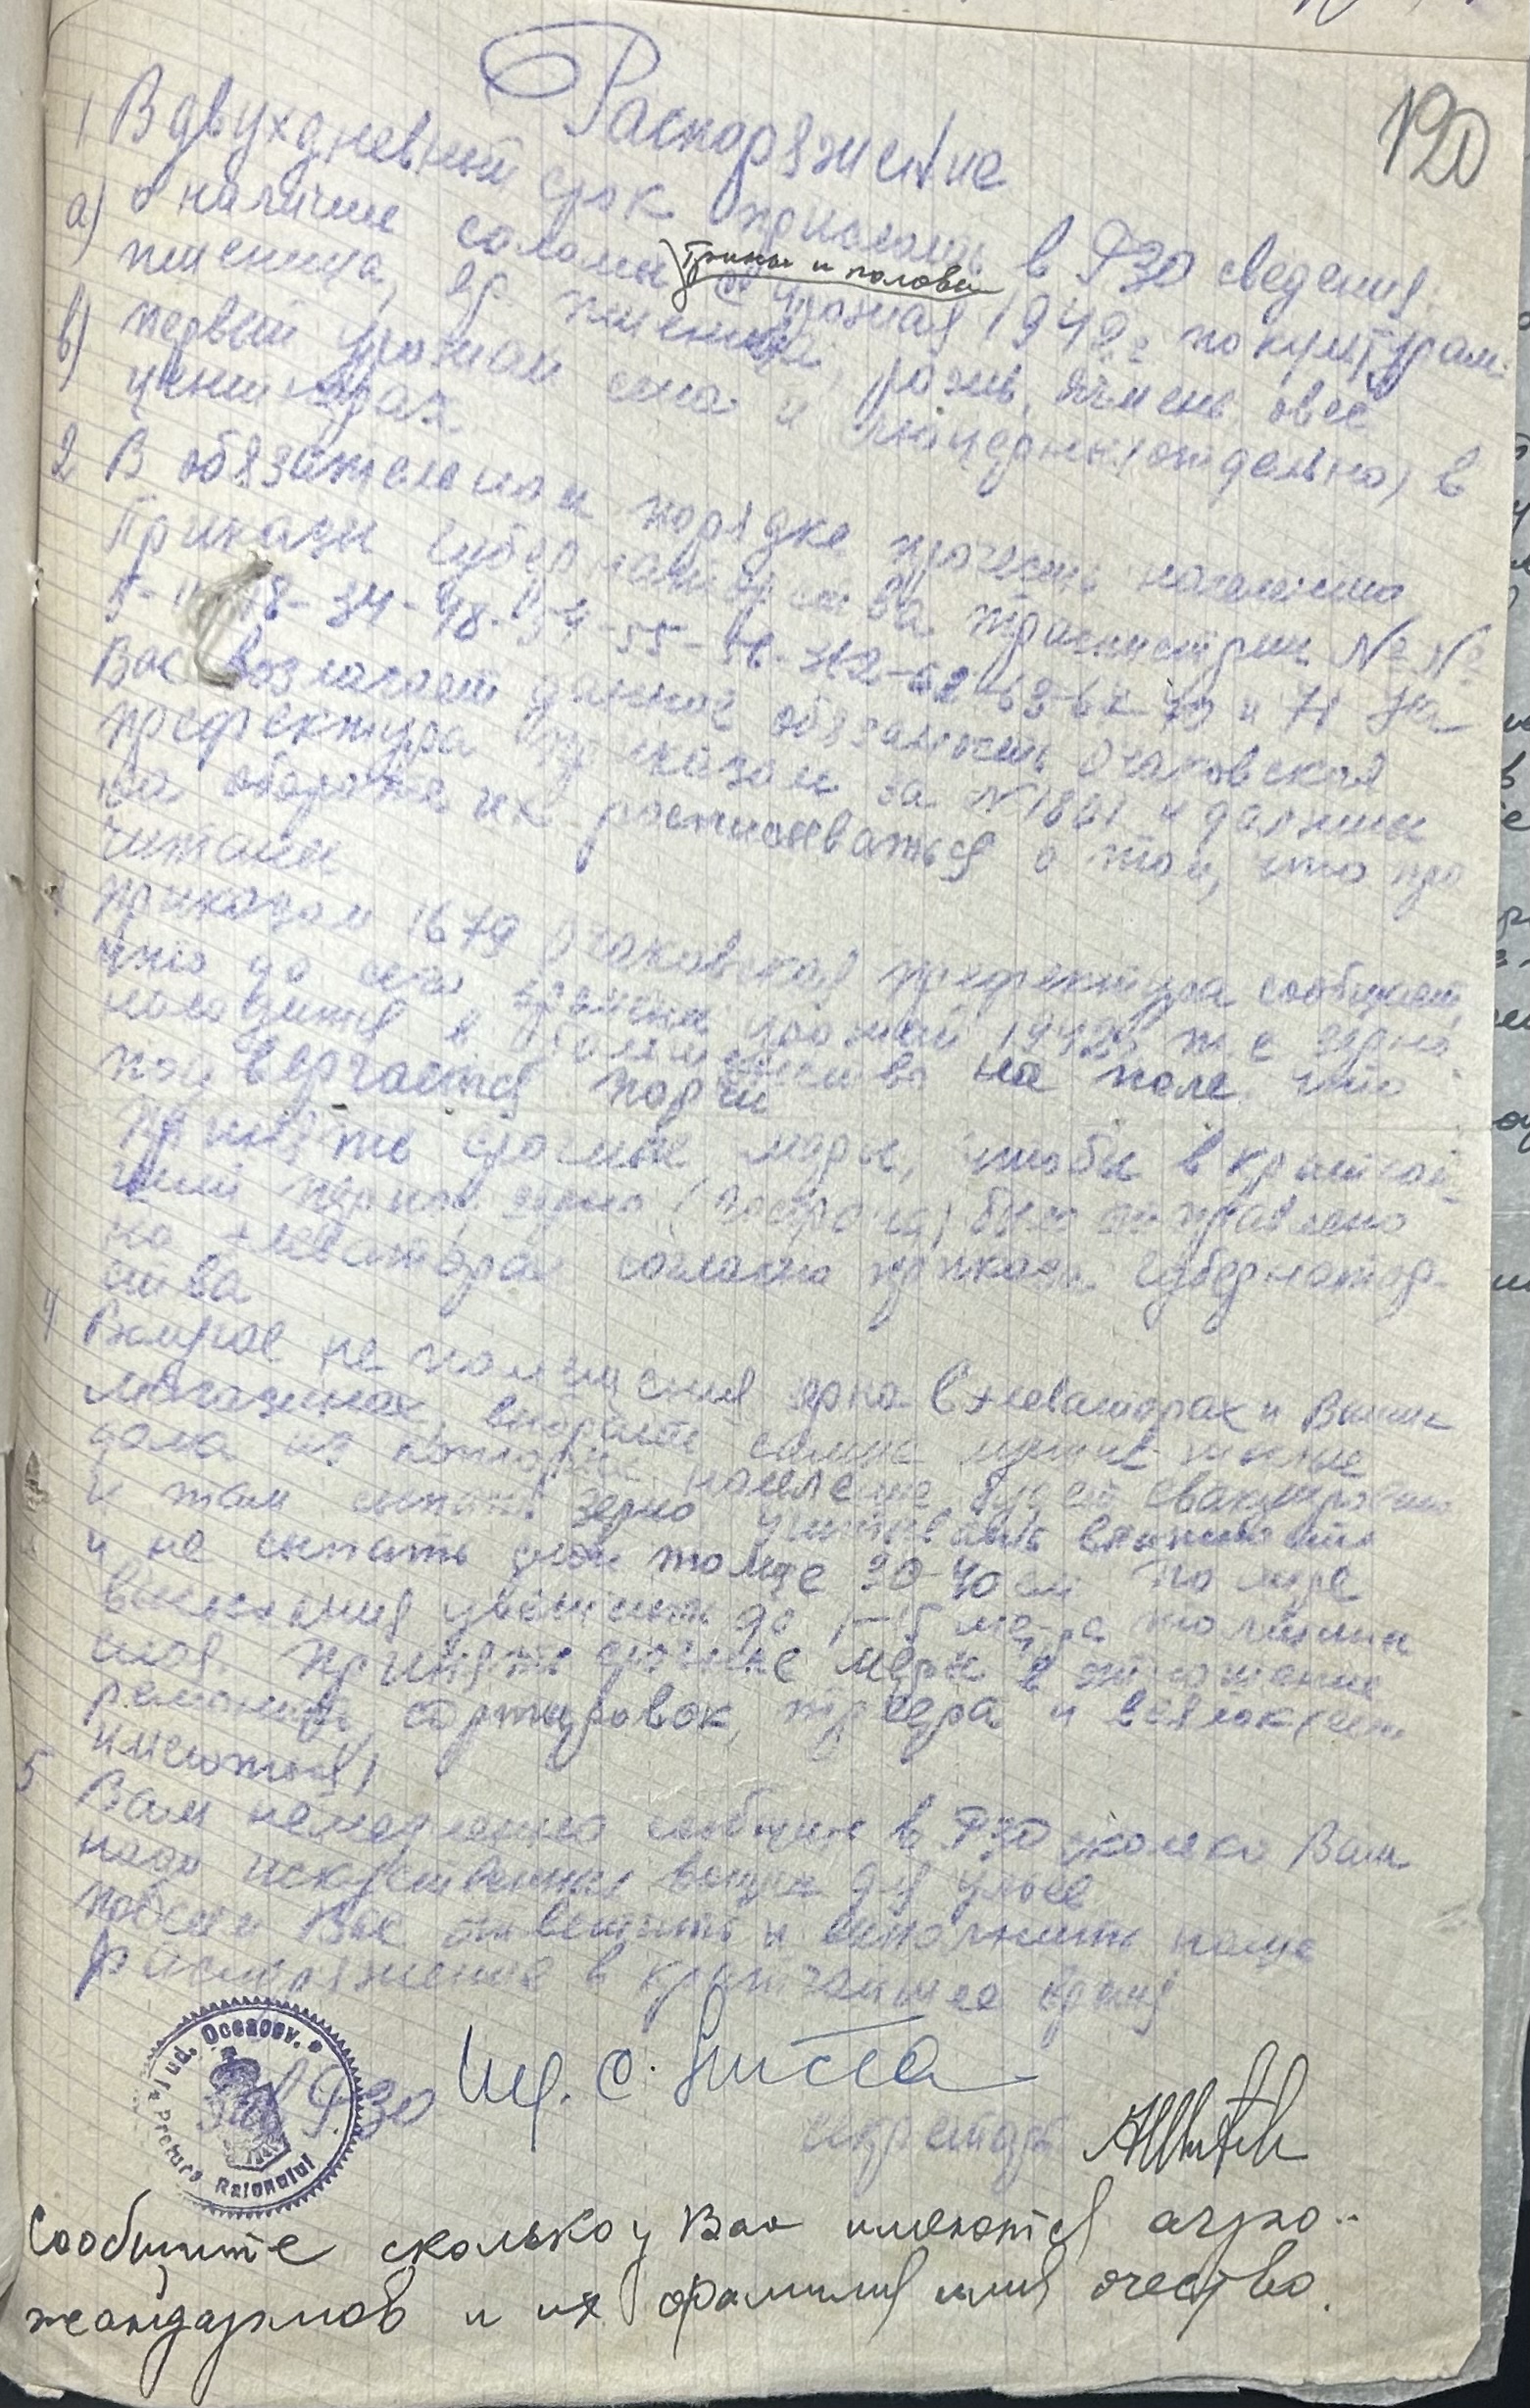 120
Распоряжение
1 В двухдневный срок прислать в РЗО сведения:
а) о наличие соломы трины и половы с урожая 1942 г. по культурам:
пшеница, яр пшеница, рожь, ячмень, овес
в) первый урожай сена и люцерны (отдельно) в
центнерах
2 В обязательном порядке прочесть населению
Приказы Губернаторства Транснистрии №№
18-34-48-54-55-56- 62-63- и 71 На
Вас возлагает данное обязанность Очаковская
префектура приказом за N 1801 и должны
на обороте их расписываться о том, что про
читали
Приказом 1679 Очаковская префектура сообщает,
что до сего времени урожай 1942 г. т.е зерно
находится в большинство на поле, что
подвергается порчи
Принять срочные меры, чтобы в кратчай-
ший период зерно было отправлено
на элеваторах согласно приказа губернатор-
ства
4 Вслучае не помещения зерна в элеваторах и Ваших
магазинах, выбрать самые лучшие жилые
дома из которых население будет эвакуировано
и там ссыпать зерно учитывать влажность
и не сыпать слой толще 30-40 см По мере
высыхания увеличить до 1-1,5 метра толщины
слоя. Принять срочные меры в отношение
ремонта, сортировок, триера и веялок (
имеются)
5 Вам немедленно сообщить в РЗО сколько Вам
надо искуственных вощин для ульев
Просим Вас ответить и выполнить наше
распоряжение в кратчайшее время
Jud. Oceacov.
Pretura Raionului
Зав РЗО
секретарь
Сообщите сколько у Вас имеются агро-
жандармов и их фамилия имя очество.